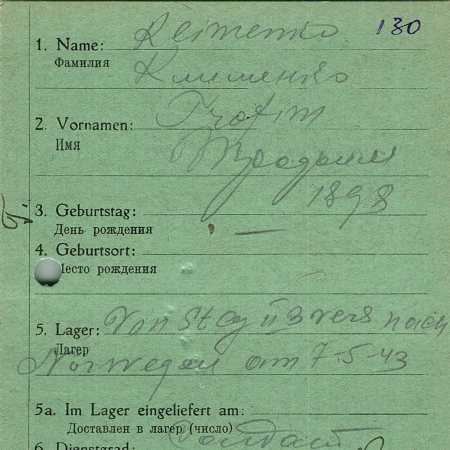 130
1. Name: Klimenko
Фамилия Клименко
2. Vornamen: Trofim
Имя Трофим
1898
3. Geburtstag:
День рождения
4. Geburtsort:
Место рождения
5. Lager: Von Stlg II B vers nach
Лагер Norwegen am 7-5-43
5a. Im Lager eingeliefert am:
Доставлен в лагер (число)
6. Dienstgrad: Soldat